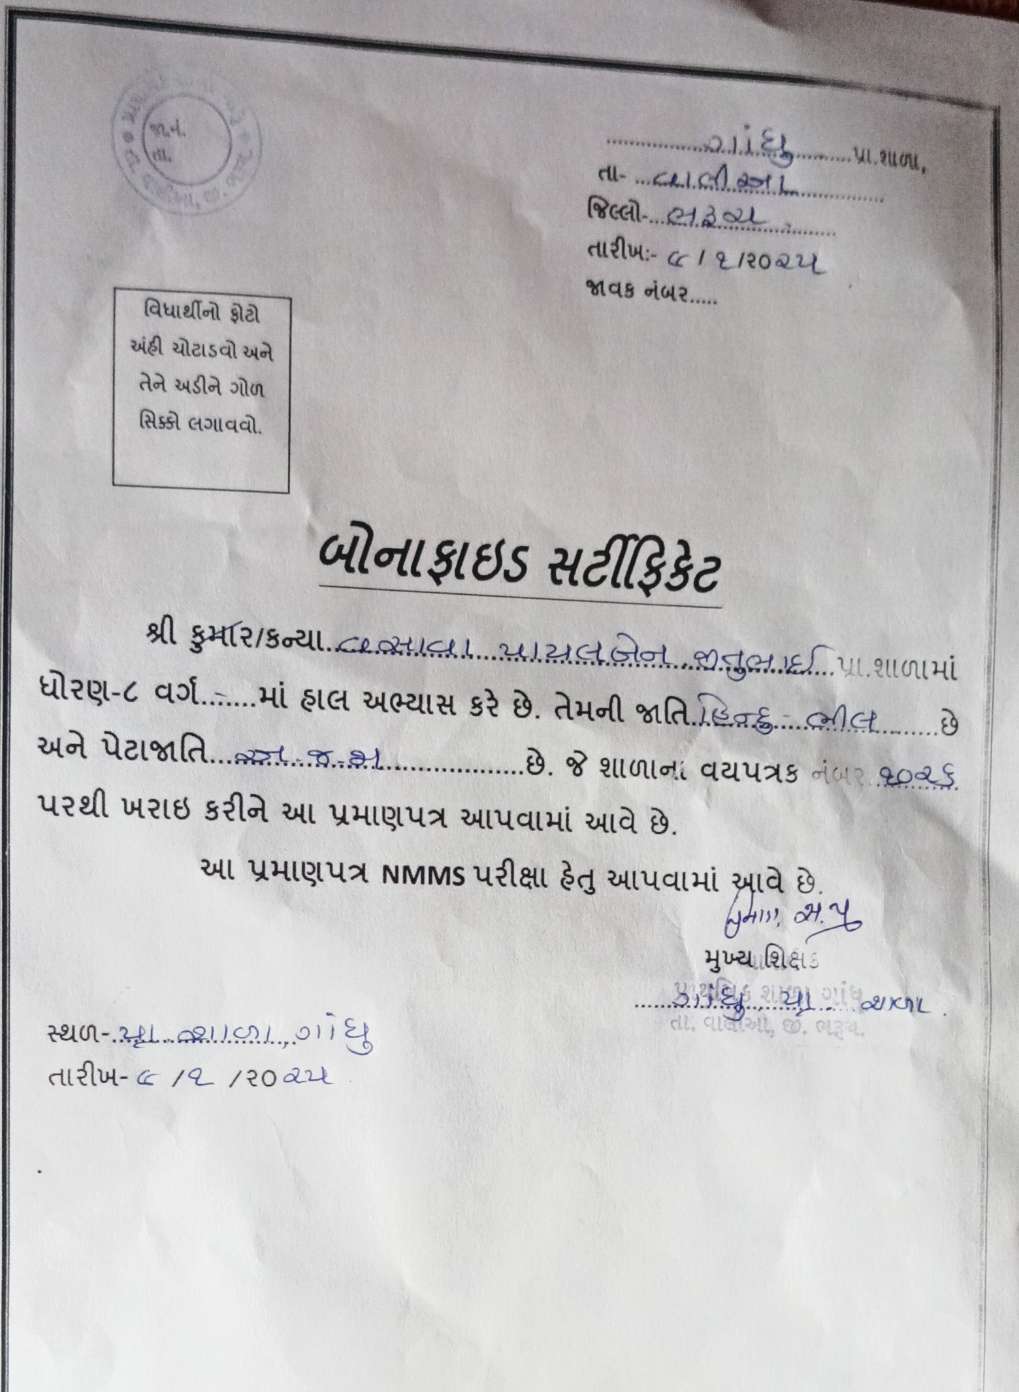 જા.નં.
તા.
ગાંધુ પ્રા.શાળા,
તા- વાલીઆ
જિલ્લો- ભરૂચ
તારીખ:- ૯ / ૧ /૨૦૨૫
જાવક નંબર.....
વિધાર્થીનો ફોટો
અંહી ચોટાડવો અને
તેને અડીને ગોળ
સિક્કો લગાવવો.
બોનાફાઇડ સર્ટીફિકેટ
શ્રી કુમાર/કન્યા વસાવા પાયલબેન જીતુભાઈ પ્રા.શાળામાં
ધોરણ-૮ વર્ગ..-....માં હાલ અભ્યાસ કરે છે. તેમની જાતિ હિન્દુ - ભીલ છે
અને પેટાજાતિ અ.જ.જા છે. જે શાળાના વયપત્રક નંબર ૧૦૨૬
પરથી ખરાઇ કરીને આ પ્રમાણપત્ર આપવામાં આવે છે.
આ પ્રમાણપત્ર NMMS પરીક્ષા હેતુ આપવામાં આવે છે.
મુખ્ય શિક્ષક
ગાંધુ પ્રા. શાળા.
પ્રાથમિક શાળા ગાંધુ
તા. વાલીઆ, જી. ભરૂચ.
સ્થળ- પ્રા. શાળા, ગાંધુ
તારીખ- ૯ /૧ /૨૦૨૫